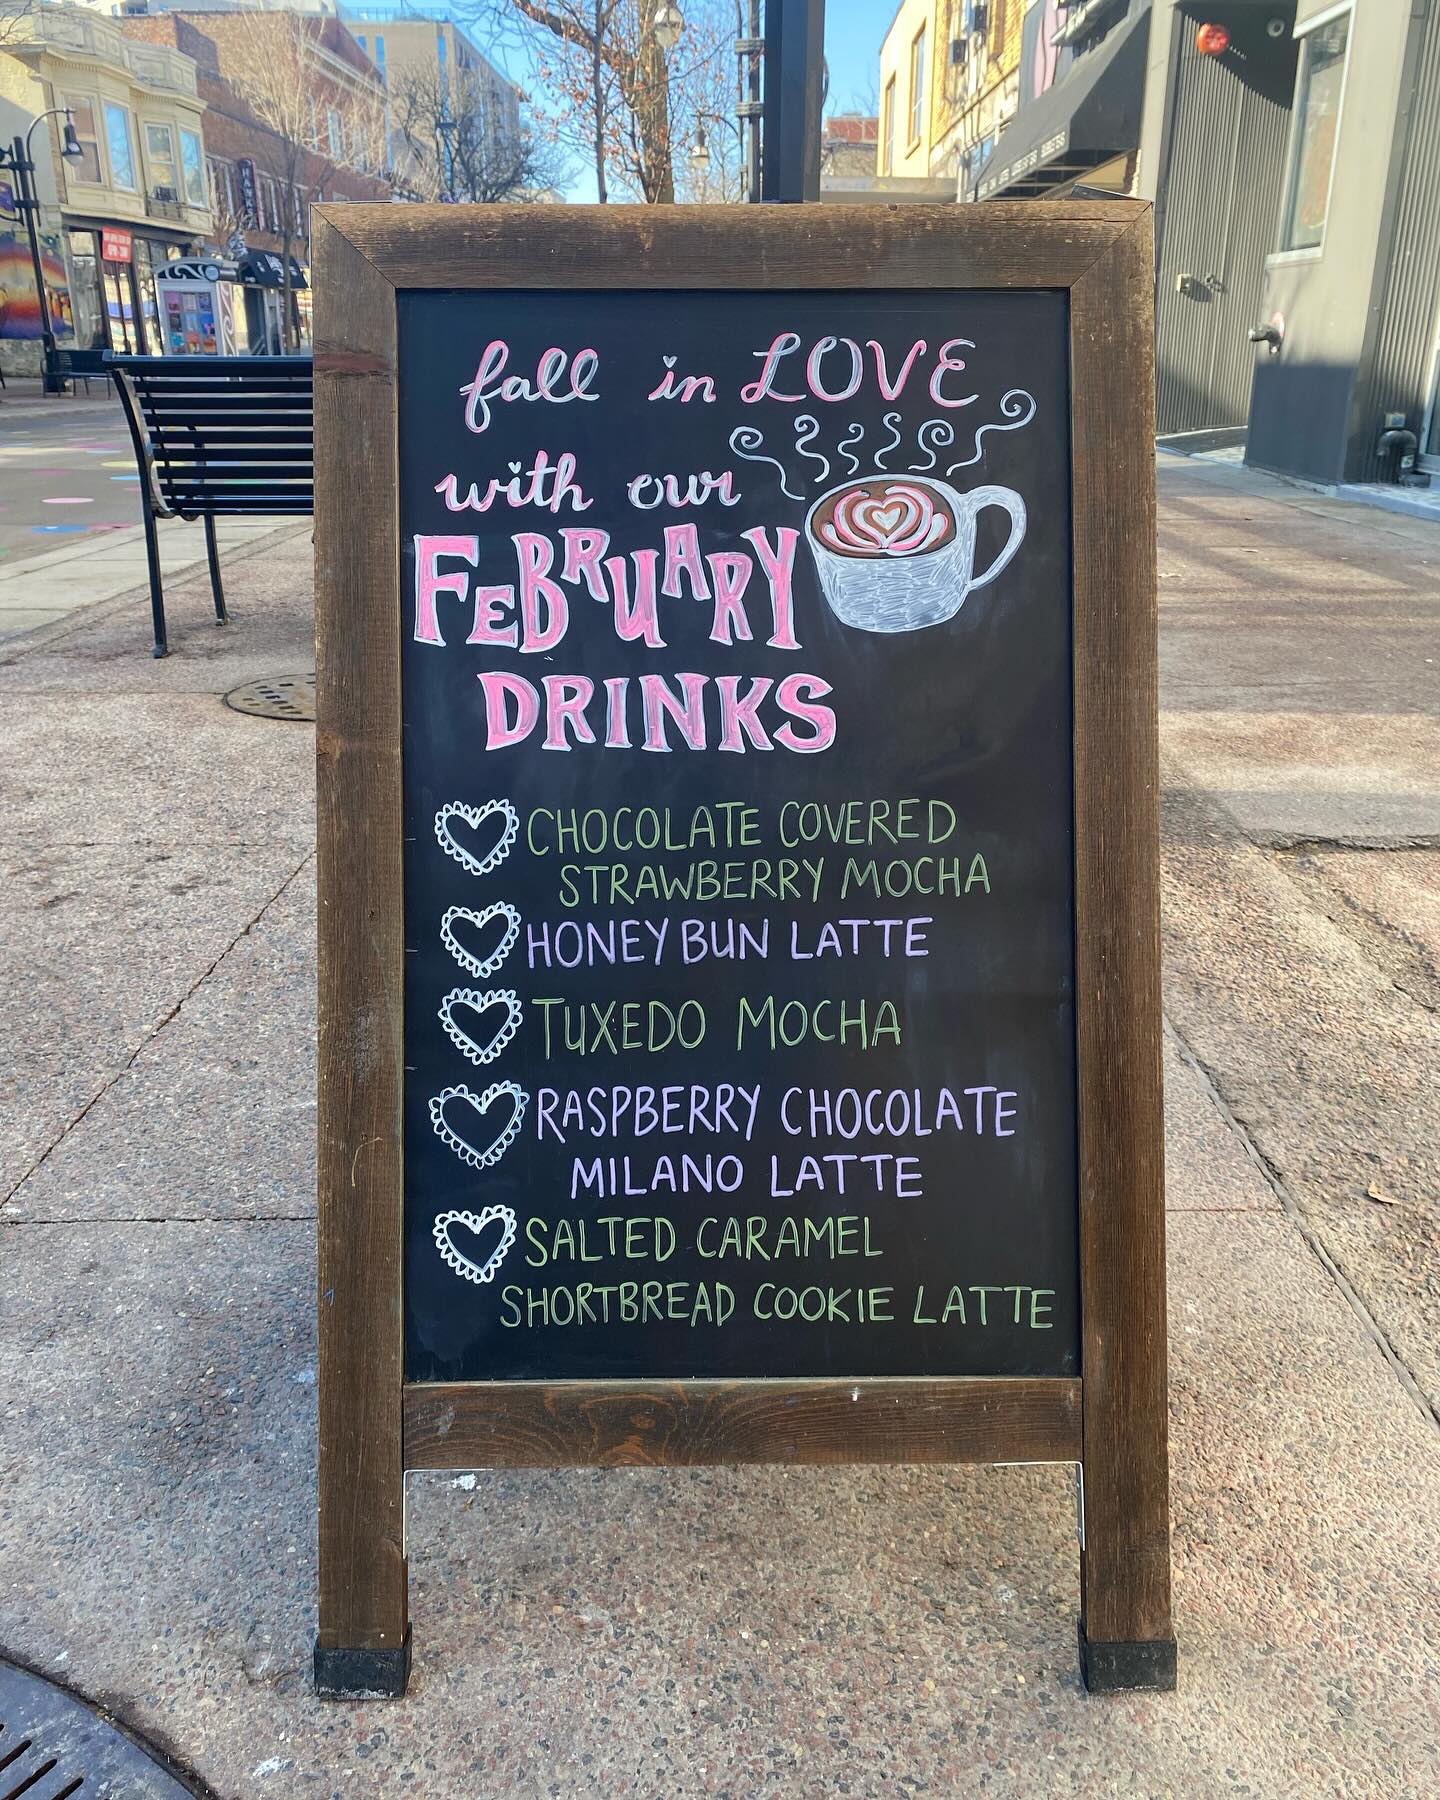 fall in LOVE
with our
FEBRUARY
DRINKS
CHOCOLATE COVERED
STRAWBERRY MOCHA
HONEY BUN LATTE
TUXEDO MOCHA
RASPBERRY CHOCOLATE
MILANO LATTE
SALTED CARAMEL
SHORTBREAD COOKIE LATTE